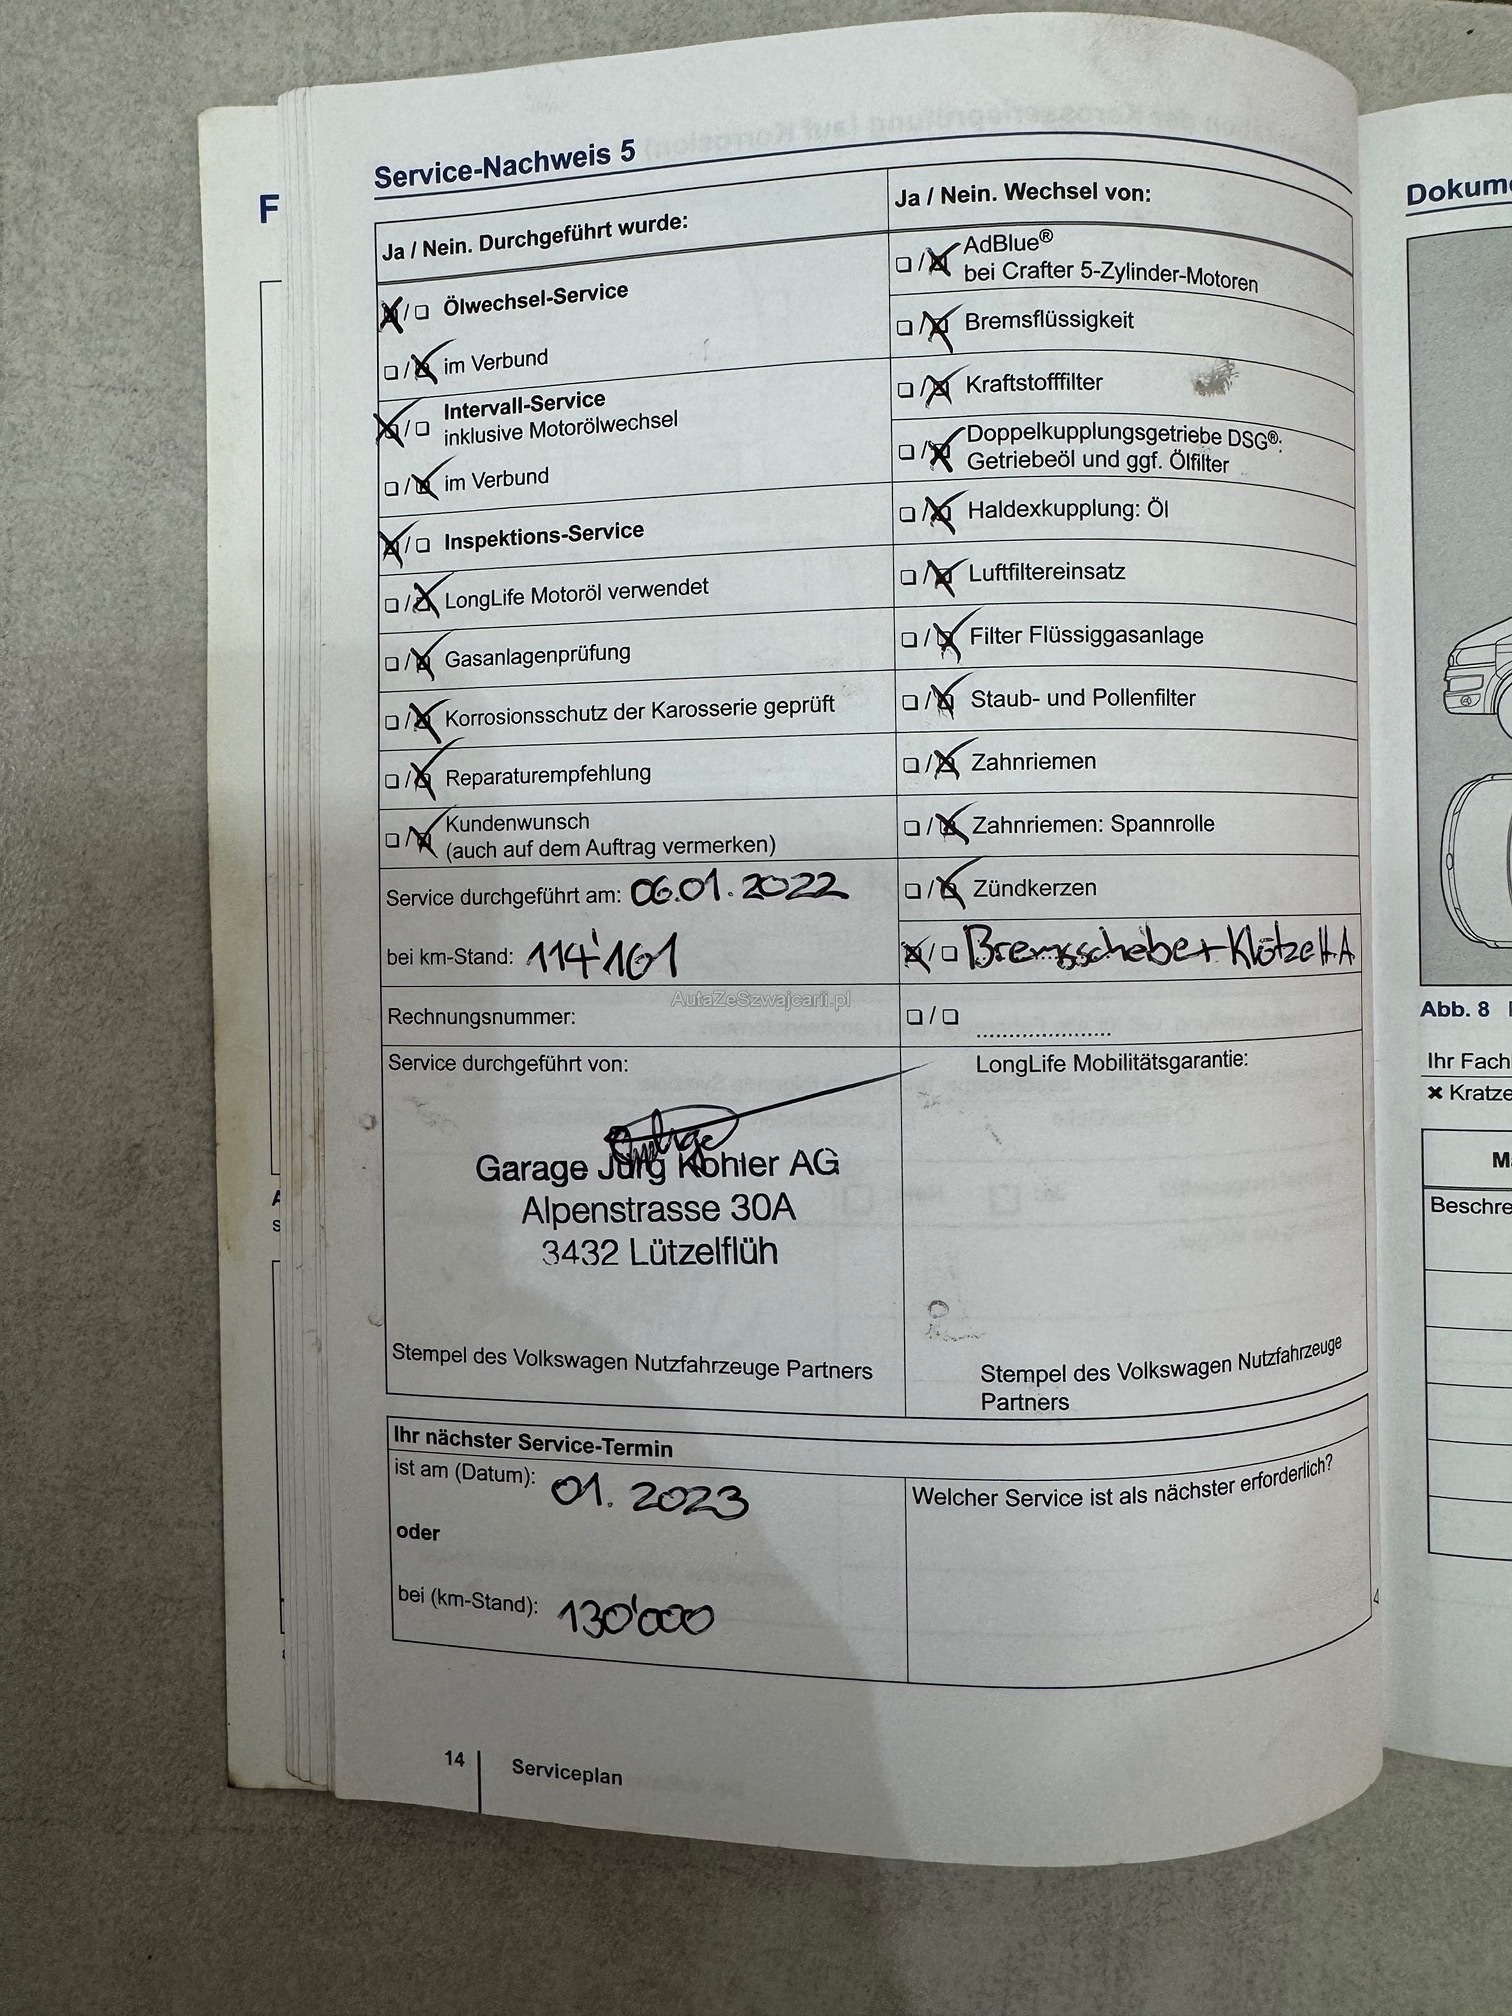 F
Service-Nachweis 5
Ja / Nein. Durchgeführt wurde:
Ölwechsel-Service
im Verbund
Intervall-Service
inklusive Motorölwechsel
im Verbund
Inspektions-Service
LongLife Motoröl verwendet
Gasanlagenprüfung
Korrosionsschutz der Karosserie geprüft
Reparaturempfehlung
Kundenwunsch
(auch auf dem Auftrag vermerken)
Service durchgeführt am: 06.01.2022
bei km-Stand: 114'161
Rechnungsnummer:
Service durchgeführt von:
Garage Jürg Kohler AG
Alpenstrasse 30A
3432 Lützelflüh
Stempel des Volkswagen Nutzfahrzeuge Partners
Ja / Nein. Wechsel von:
AdBlue®
bei Crafter 5-Zylinder-Motoren
Bremsflüssigkeit
Kraftstofffilter
Doppelkupplungsgetriebe DSG®:
Getriebeöl und ggf. Ölfilter
Haldexkupplung: Öl
Luftfiltereinsatz
Filter Flüssiggasanlage
Staub- und Pollenfilter
Zahnriemen
Zahnriemen: Spannrolle
Zündkerzen
Bremsscheibe + Klötze H.A
LongLife Mobilitätsgarantie:
Stempel des Volkswagen Nutzfahrzeuge
Partners
AutaZeSzwajcarii.pl
Ihr nächster Service-Termin
ist am (Datum): 01.2023
oder
bei (km-Stand): 130'000
Welcher Service ist als nächster erforderlich?
14
Serviceplan
Dokume
Abb. 8
Ihr Fach
Kratze
Beschre